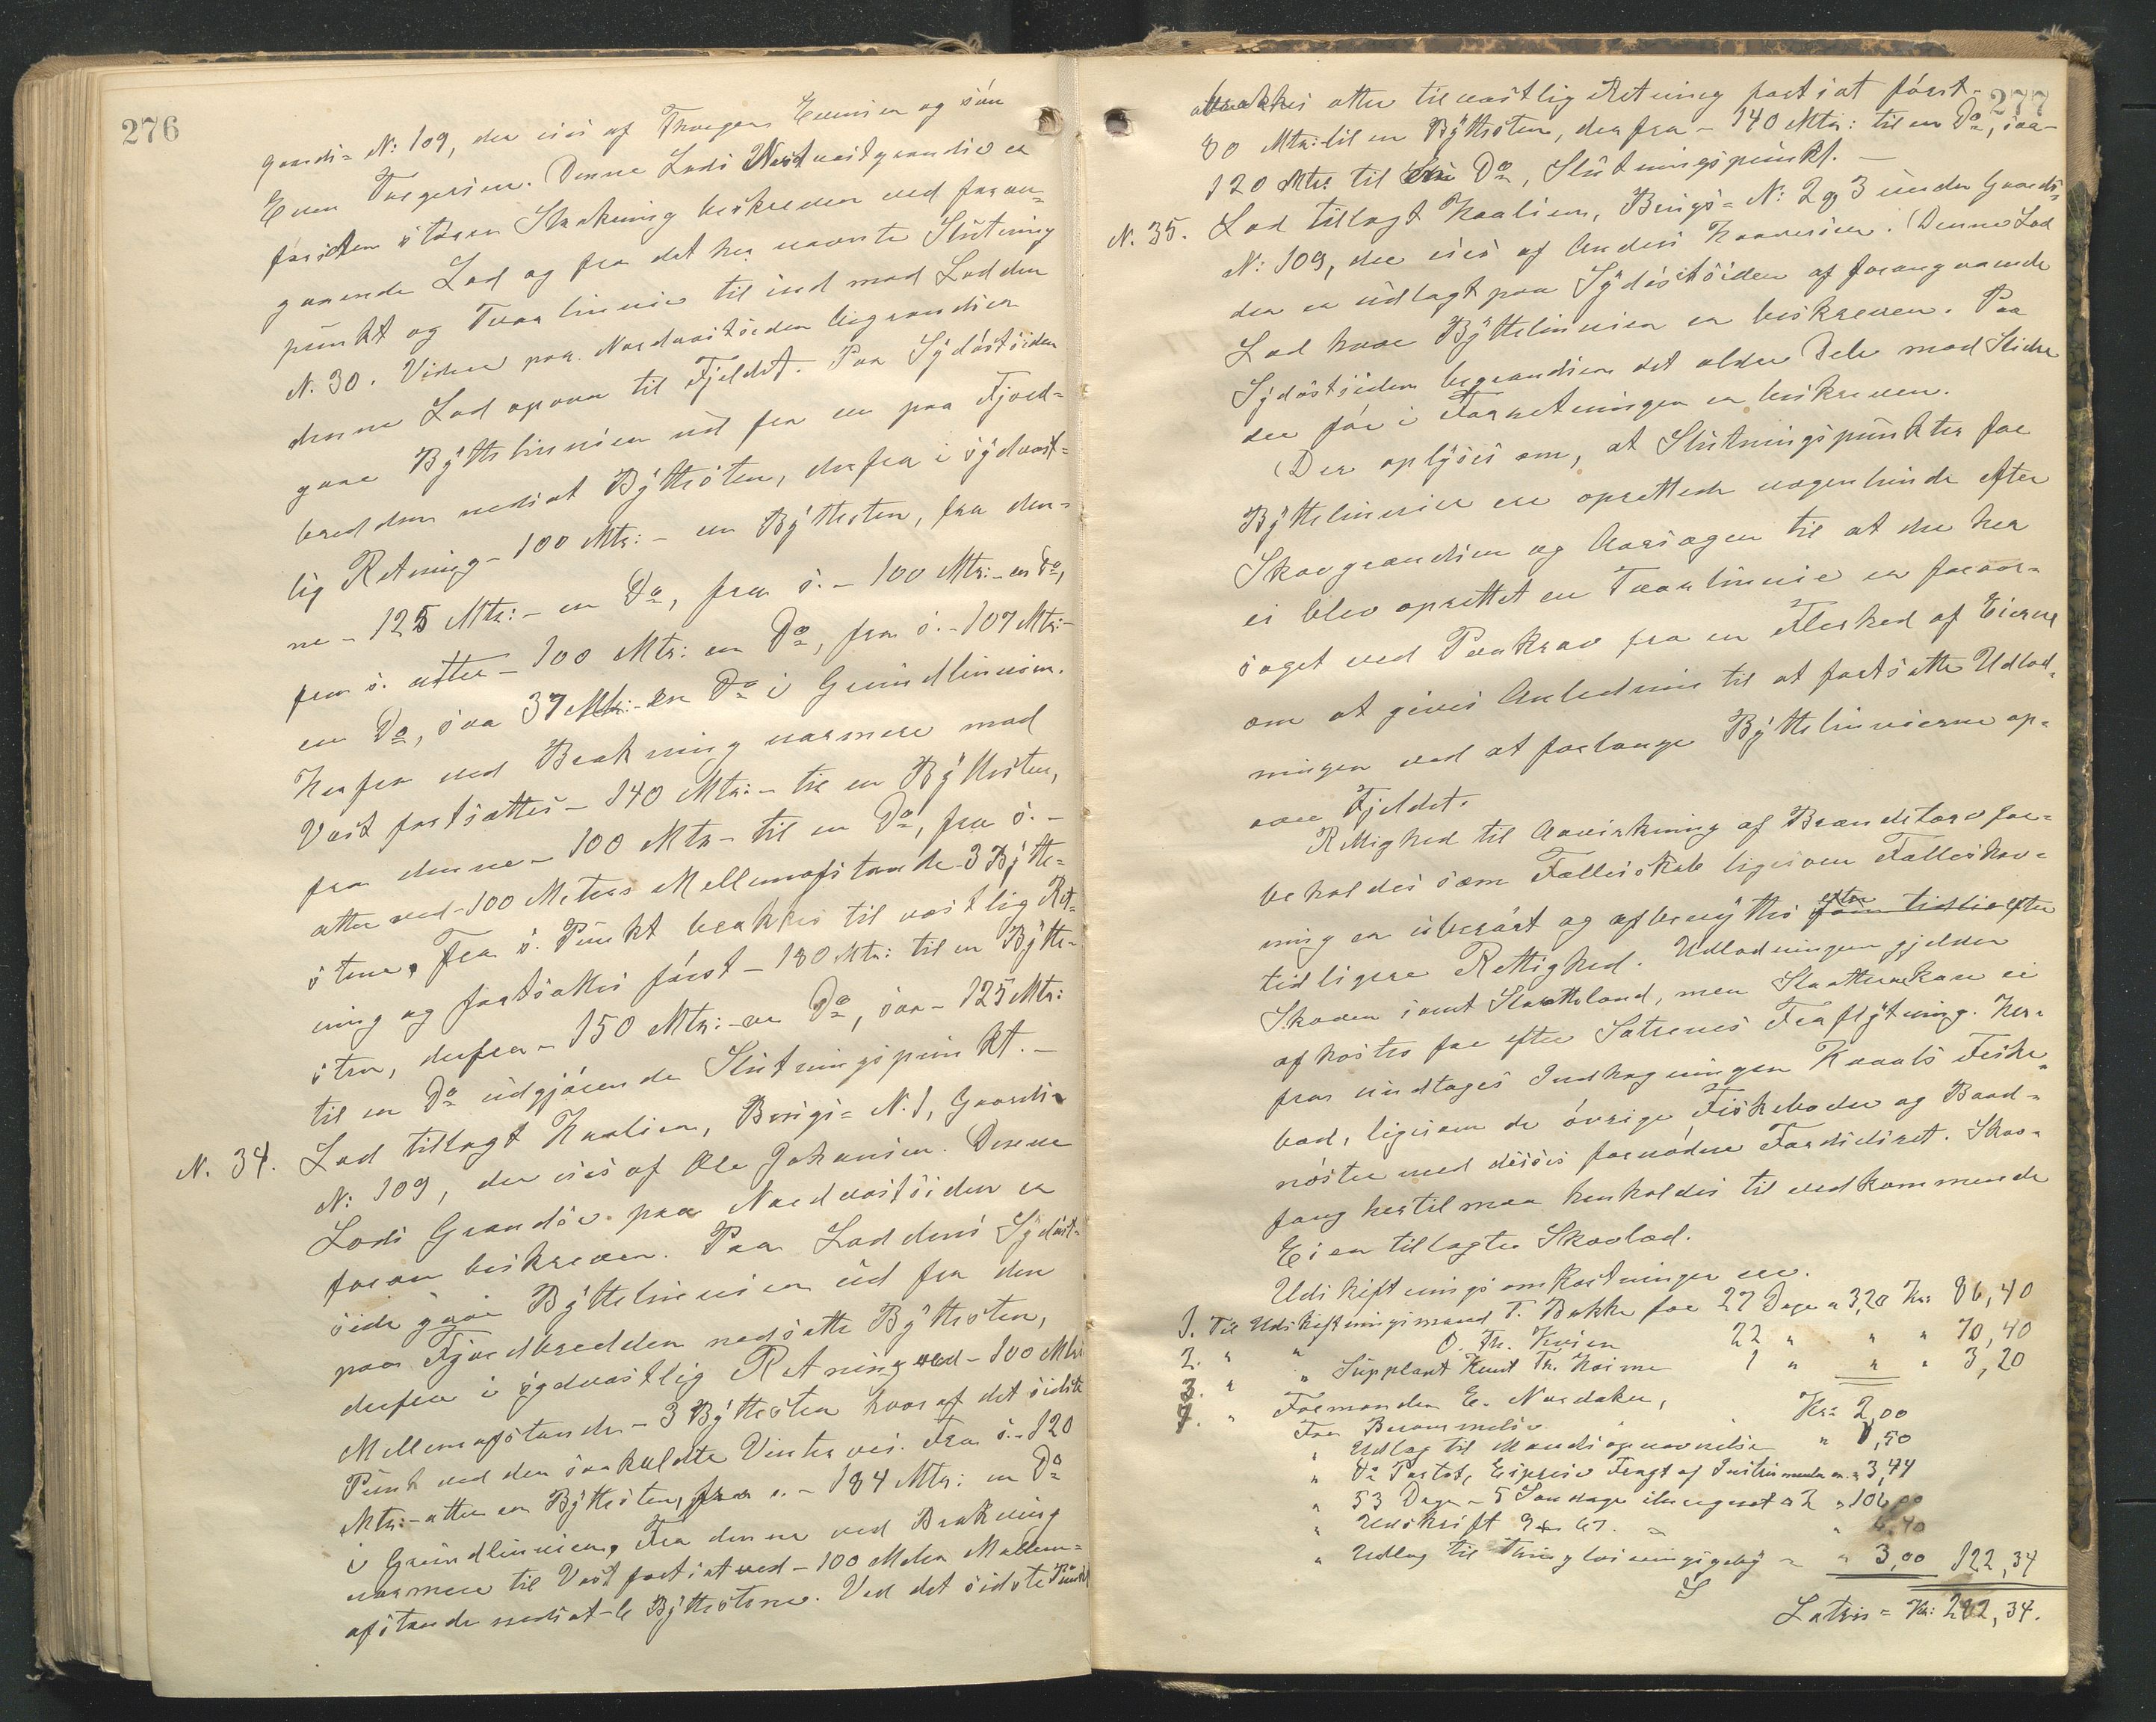 276
gaards=N: 109, der eies af Thorger Evensen og søn
Even Torgersen. Denne Lods Nordvestgrændse er
for største Strækning beskreven ved foran=
gaaende Lod og fra det her nævnte Slutning
punkt og Tværlinnie til ind mod Lodden
N. 30. Videre paa Nordvestsiden begrændser
denne Lod opover til Fjeldet. Paa Sydøstsiden
gaar Byttelinnien ud fra en paa Fjord=
bredden nedsat Byttesten, derfra i sydvest=
lig Retning - 100 Mtr: - en Byttesten, fra den=
ne - 125 Mtr: - en Do, fra s. - 100 Mtr: - en Do,
fra s. atter - 100 Mtr: en Do, fra s. - 107 Mtr: -
en Do, saa 37 Mtr: - en Do i Grundlinnien.
Herfra ved Brækning nærmere mod
Vest fortsættes - 140 Mtr: - til en Byttesten,
fra denne - 100 Mtr - til en Do, fra s. -
atter ved - 100 Meters Mellemafstande 3 Bytte=
stene. Fra s. Punkt brækkes til vestlig Ret=
ning og fortsættes først - 180 Mtr: til en Bytte=
sten, derfra - 150 Mtr: - en Do, saa - 125 Mtr:
til en Do udgjørende Slutningspunkt. -
N. 34. Lod tillagt Haalien, Brugs= N. 1, Gaards=
N: 109, der eies af Ole Johansen. Denne
Lods Grændse paa Nordvestsiden er
foran beskreven. Paa Loddens Sydøst=
side gaar Byttelinnien ud fra den
paa Fjordbredden nedsatte Byttesten,
derfra i sydvestlig Retning ved - 100 Mtrs
Mellemafstande - 3 Byttesten hvoraf det sidste
Punk ved den saakaldte Vintervei. Fra s. - 120
Mtr: - atter en Byttesten, fra s. - 184 Mtr: en Do
i Grundlinnien. Fra denne ved Brækning
nærmere til Vest fortsat ved - 100 Meter Mellem=
afstande nedsat - 6 Byttestene. Ved det sidste Punkt
277
brækkes atter til vestlig Retning fortsat først -
80 Mtr: til en Byttesten, derfra - 140 Mtr: til en Do, saa -
120 Mtr: til en Do, Slutningspunkt. -
N. 35. Lod tillagt Haalien, Brugs= N: 2 og 3 under Gaards=
N: 109, der eies af Anders Haaversen. (Denne Lod
der er udlagt paa Sydøstsiden af foregaaende
Lod hvor Byttelinnien er beskreven. Paa
Sydøstsiden begrændses det ældre Dele mod Slidre
der før i Forretningen er beskreven.
(Der oplyses om, at Slutningspunkter for
Byttelinnier ere oprettede nogenlunde efter
Skovgrændsen og Aarsagen til at der her
ei blev oprettet en Tværlinnie er foraar=
saget ved Paakrav fra en Flerhed af Eierne
om at gives Anledning til at fortsætte Udlod=
ningen ved at forlænge Byttelinnierne op=
over Fjeldet.
Rettighed til Aavirkning af Brændetørv for=
beholdes som Fællesskab ligesom Fælleshav=
ning er uberørt og afbenyttes efter
tidligere Rettighed. Udlodningen gjelder
Skoven samt Slaatteland, men Slaatterne kan ei
afhøstes før efter Sætrenes Fraflytning. Her=
fra undtages Indhegningen Kvaals Fiske=
bod, ligesom de øvrige Fiskeboder og Baad=
nøster med disses fornødne Færdselsret. Skov=
fang hertil maa henholdes til vedkommende
Eier tillagte Skovlod.
Udskiftningsomkostninger ere.
1. Til Udskiftningsmand T. Bakke for 27 Dage a 3,20 Kr. 86,40
2. " " O. Th. Kvien 22 " " " 70,40
3. " " Supplant Knut Th. Hoime 1 " " " 3,20
4. " Formanden E. Nordaker,
For Berammelse Kr= 2,00
" Udlæg til Mandsopnævnelse " 1,50
" Do Portot, Expres Fragt af Instrumenter m. " 3,44
" 53 Dage - 5 Søndage iberegnet a 2 " 106,00
" Udskrift
" Udlæg til Thinglæsningsgeby " " 3,00 122,34
Latris = Kr: 282,34.